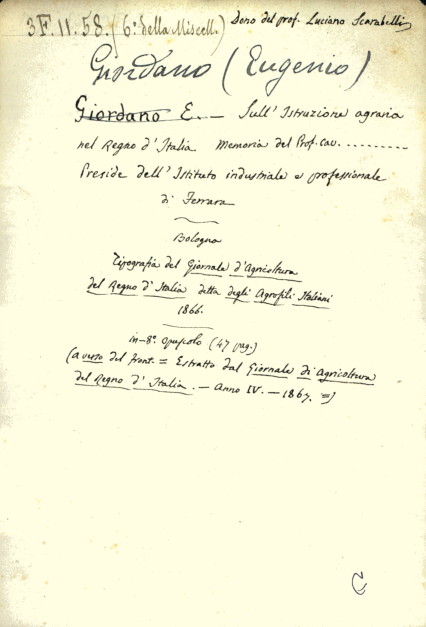 3F.11.58. (6° della Miscell.) Dono del prof. Luciano Scarabelli
Giordano (Eugenio)
Giordano E. — Sull'Istruzione agraria
nel Regno d'Italia Memoria del Prof. cav. ..........
Preside dell'Istituto industriale e professionale
di Ferrara
Bologna
Tipografia del Giornale d'Agricoltura
del Regno d'Italia detta degli Agrofili Italiani
1866.
in-8° opuscolo (47 pag.)
(a verso del front. = Estratto dal Giornale di Agricoltura
del Regno d'Italia. — Anno IV. — 1867. =)
C